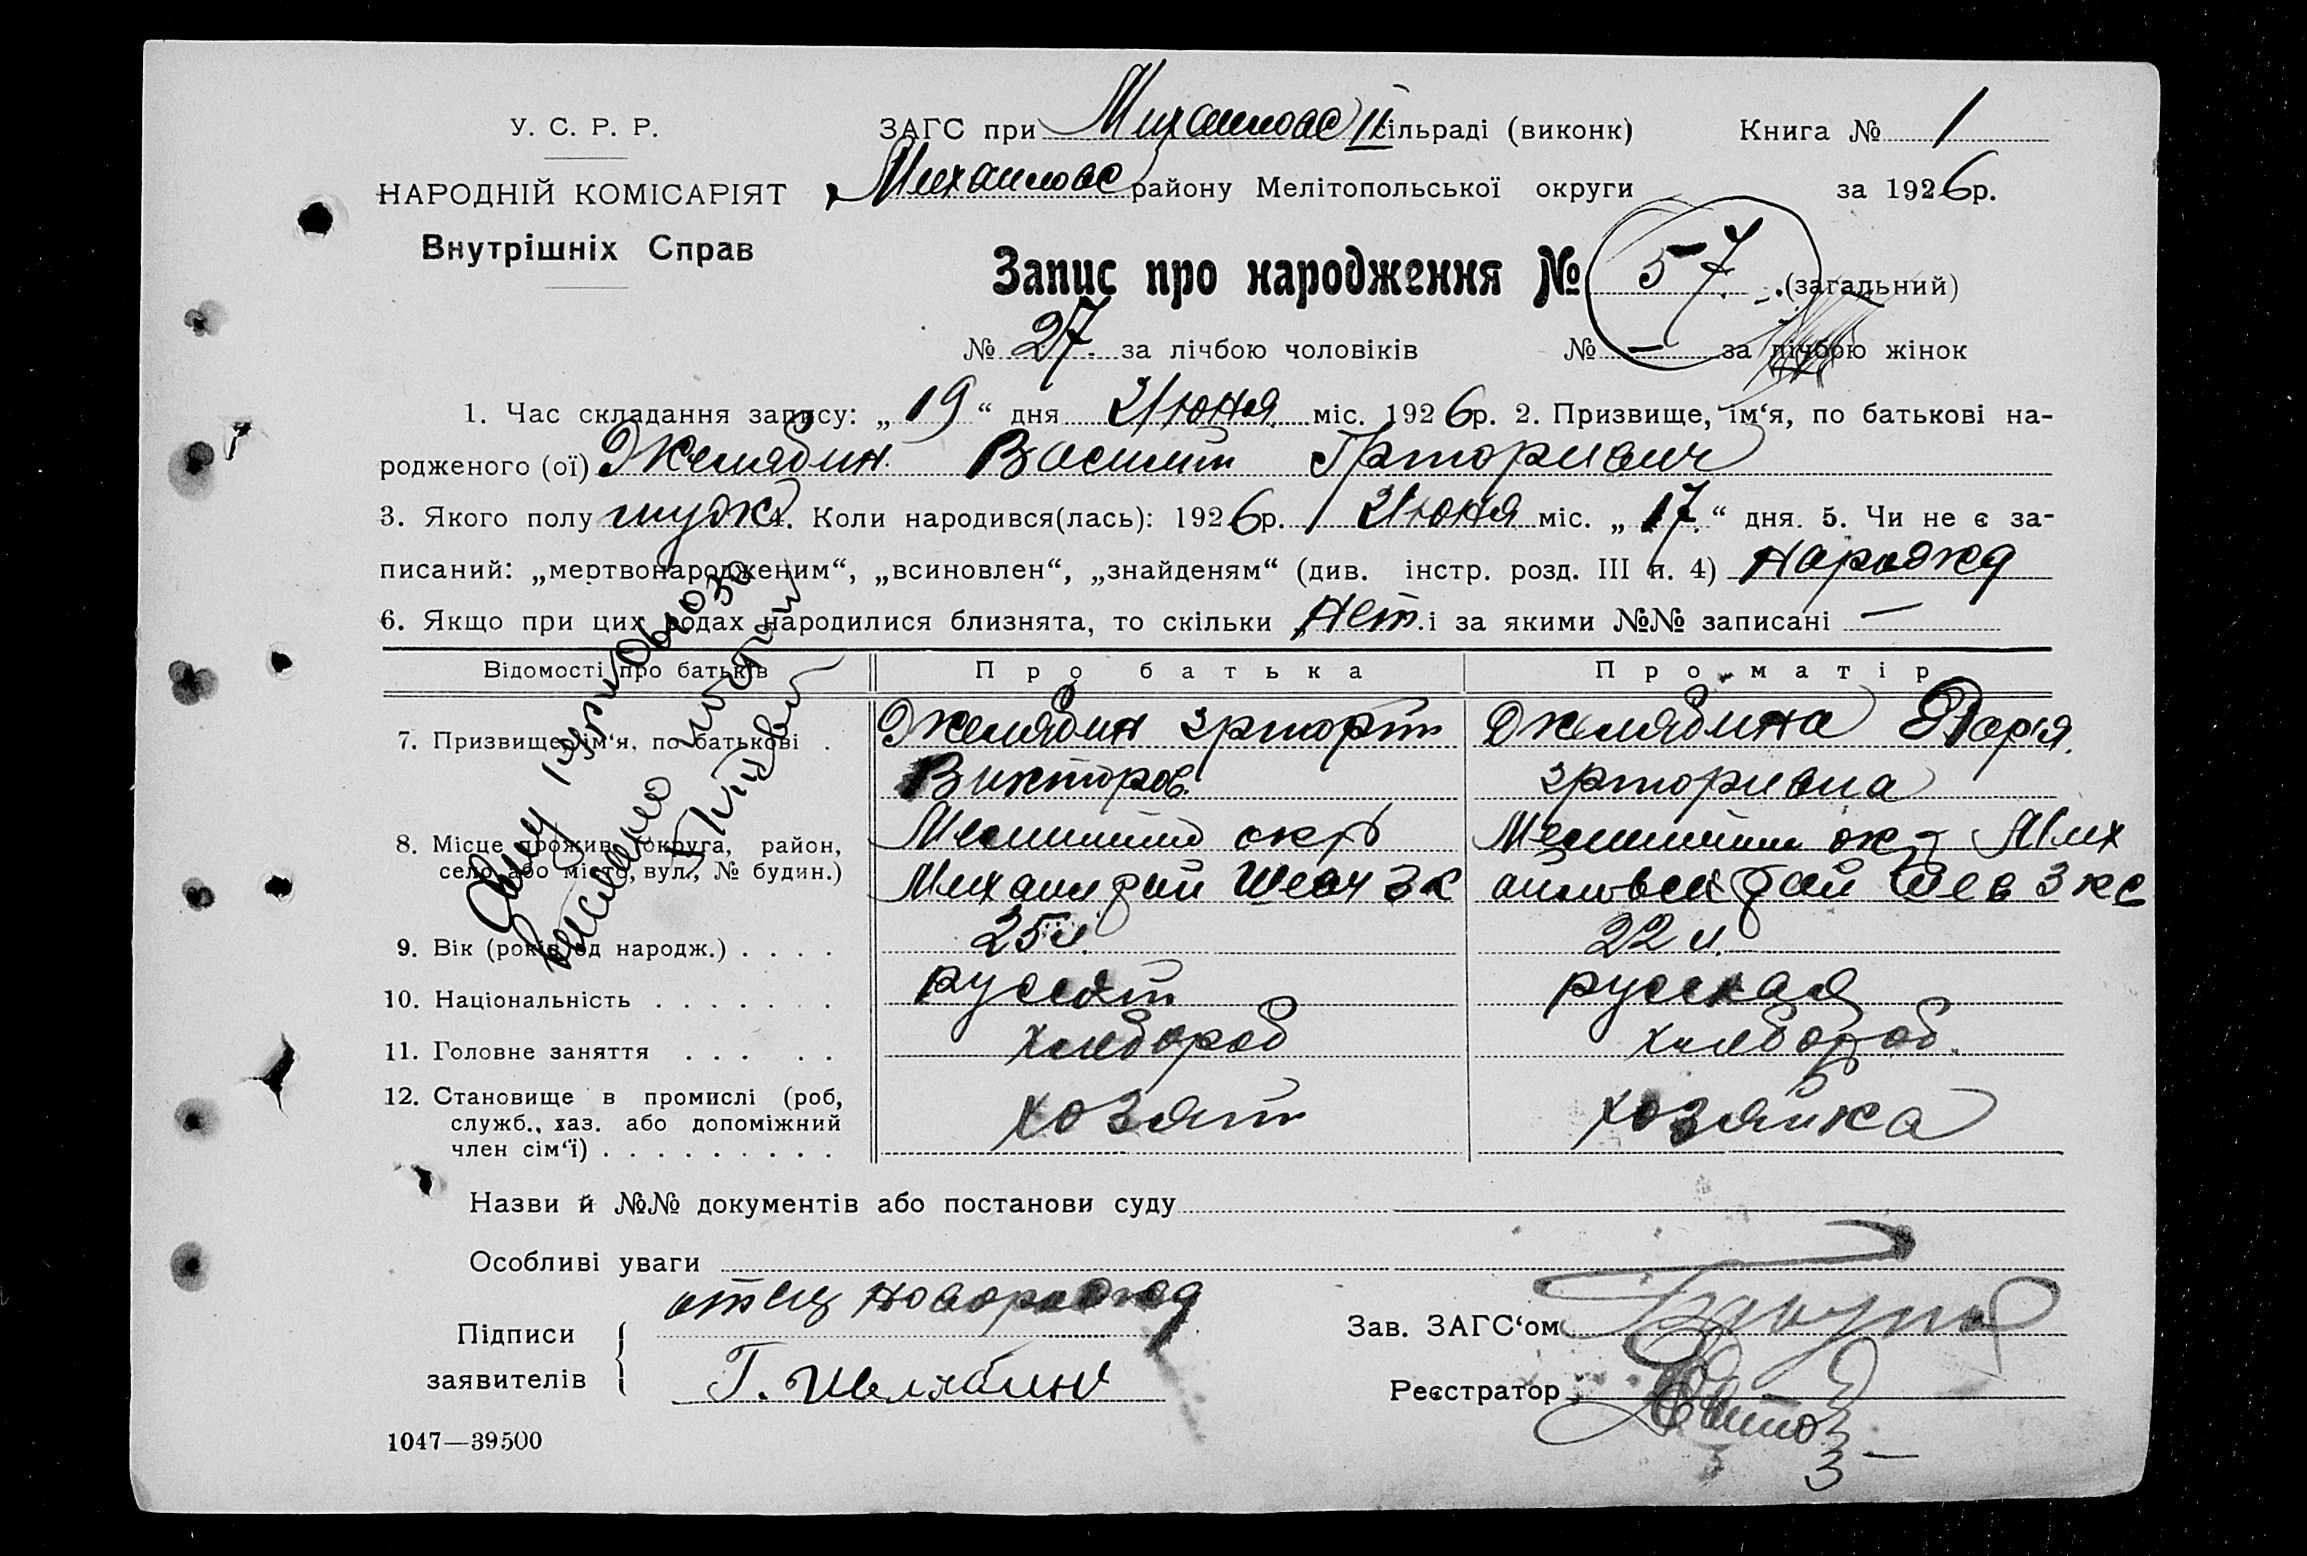 У. С. Р. Р.
НАРОДНІЙ КОМІСАРІЯТ
Внутрішніх Справ
ЗАГС при Михайловс II сільраді (виконк)
Книга № 1
Михайловс району Мелітопольської округи
за 1926р.
Запис про народження № 57 (загальний)
№ 27. за лічбою чоловіків № — за лічбою жінок
1. Час складання запису: „19“ дня Июня міс. 1926р. 2. Призвище, ім‘я, по батькові на-
родженого (ої) Желябин Василий Григориевич
3. Якого полу мужс. Коли народився(лась): 1926р. Июня міс. „17.“ дня. 5. Чи не є за-
писаний: „мертвонародженим“, „всиновлен“, „знайденям“ (див. інстр. розд. III п. 4) Нарожд
6. Якщо при цих родах народилися близнята, то скільки „Нет. і за якими №№ записані —
Відомості про батьків Про батька Про матір
7. Призвище, ім‘я, по батькові . Желябин Григорий Желябина Дарія
Викторов. Григориевна
8. Місце прожив. (округа, район, окр ок Мих
село або місто, вул., № будин.) Михаил рай Шевч 3 к айловск рай Шев 3 кс
9. Вік (років од народж.) . . . . 25 л. 22 л.
10. Національність . . . . . . . русский русская
11. Головне заняття . . . . . хлебороб хлебороб.
12. Становище в промислі (роб, хозяин хозяйка
служб., хаз. або допоміжний
член сім‘ї) . . . . . . . . .
Назви й №№ документів або постанови суду
Особливі уваги
отец новорожд
Підписи
заявителів
Г. Желябин
Зав. ЗАГС‘ом
Реєстратор
1047—39500